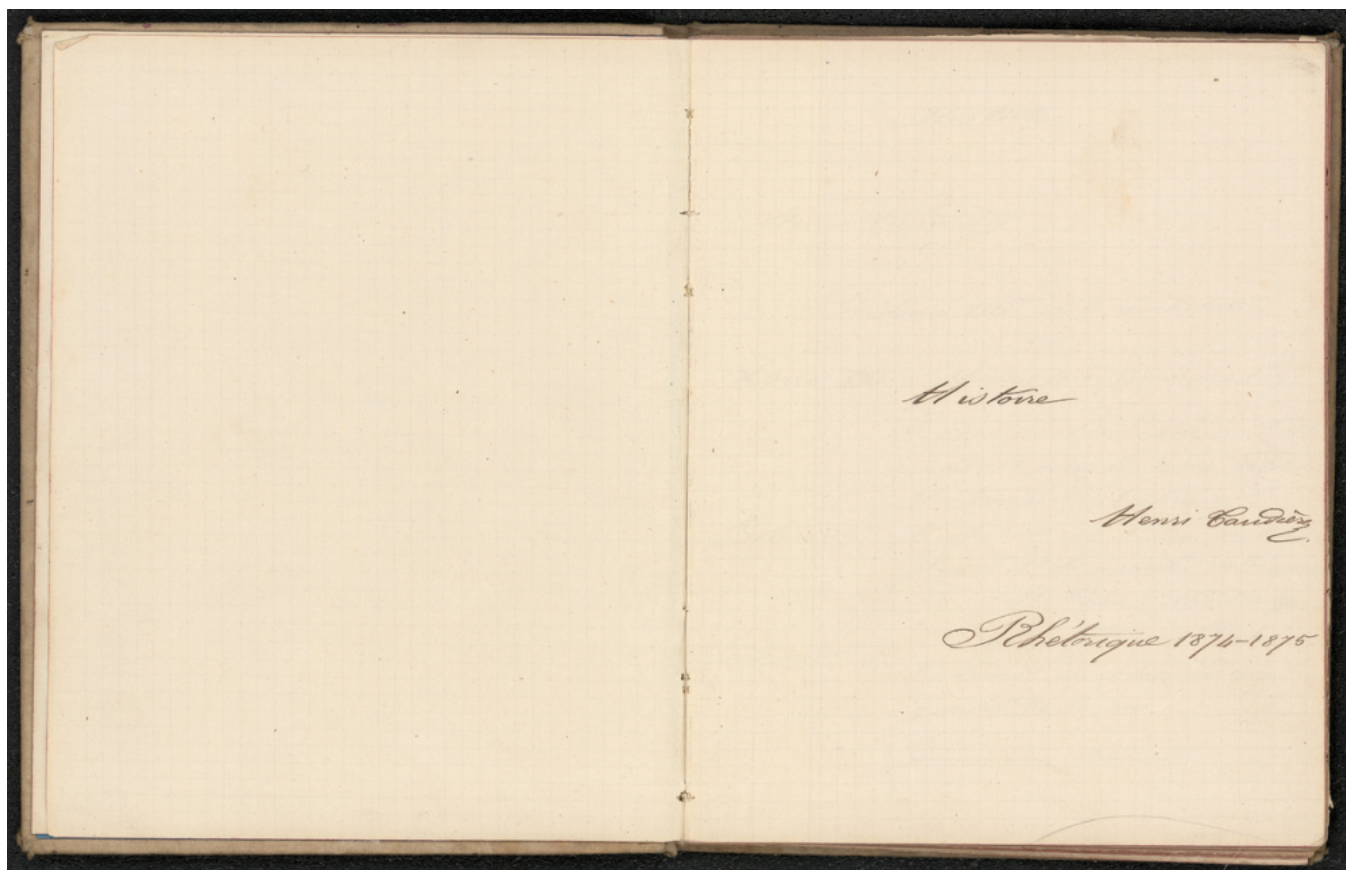 Histoire
Henri
Rhétorique 1874-1875